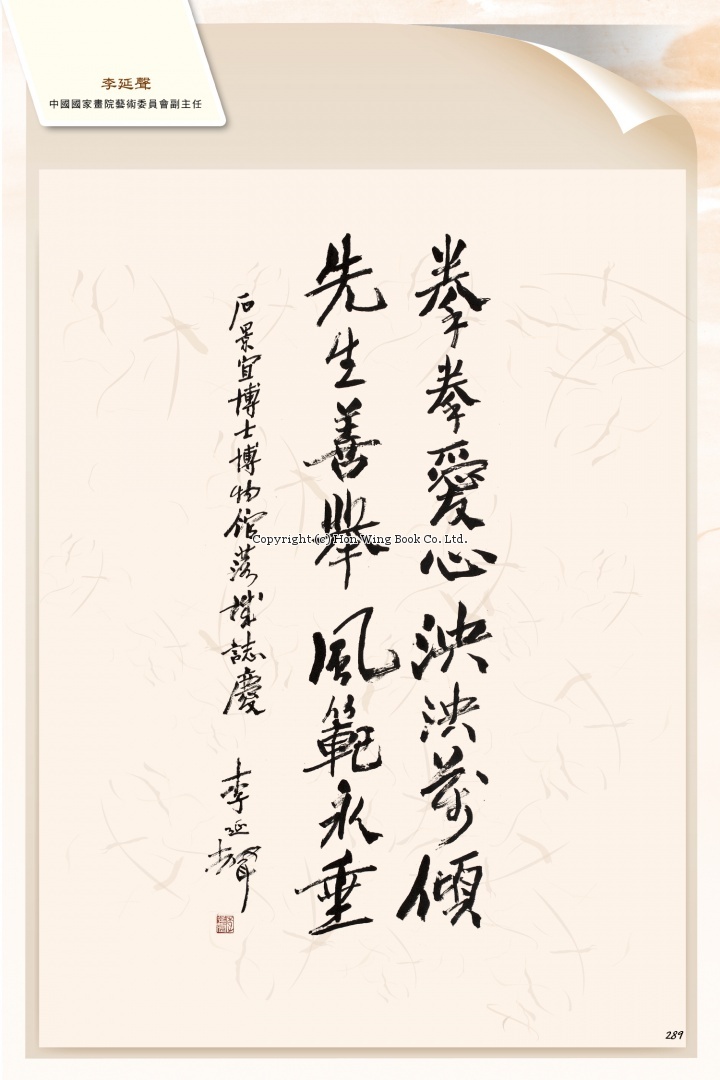 李延聲
中國國家畫院藝術委員會副主任
拳拳愛心泱泱萬傾
先生善舉風範永垂
石景宜博士博物館落成誌慶
李延聲
Copyright (c) Hon Wing Book Co. Ltd.
289